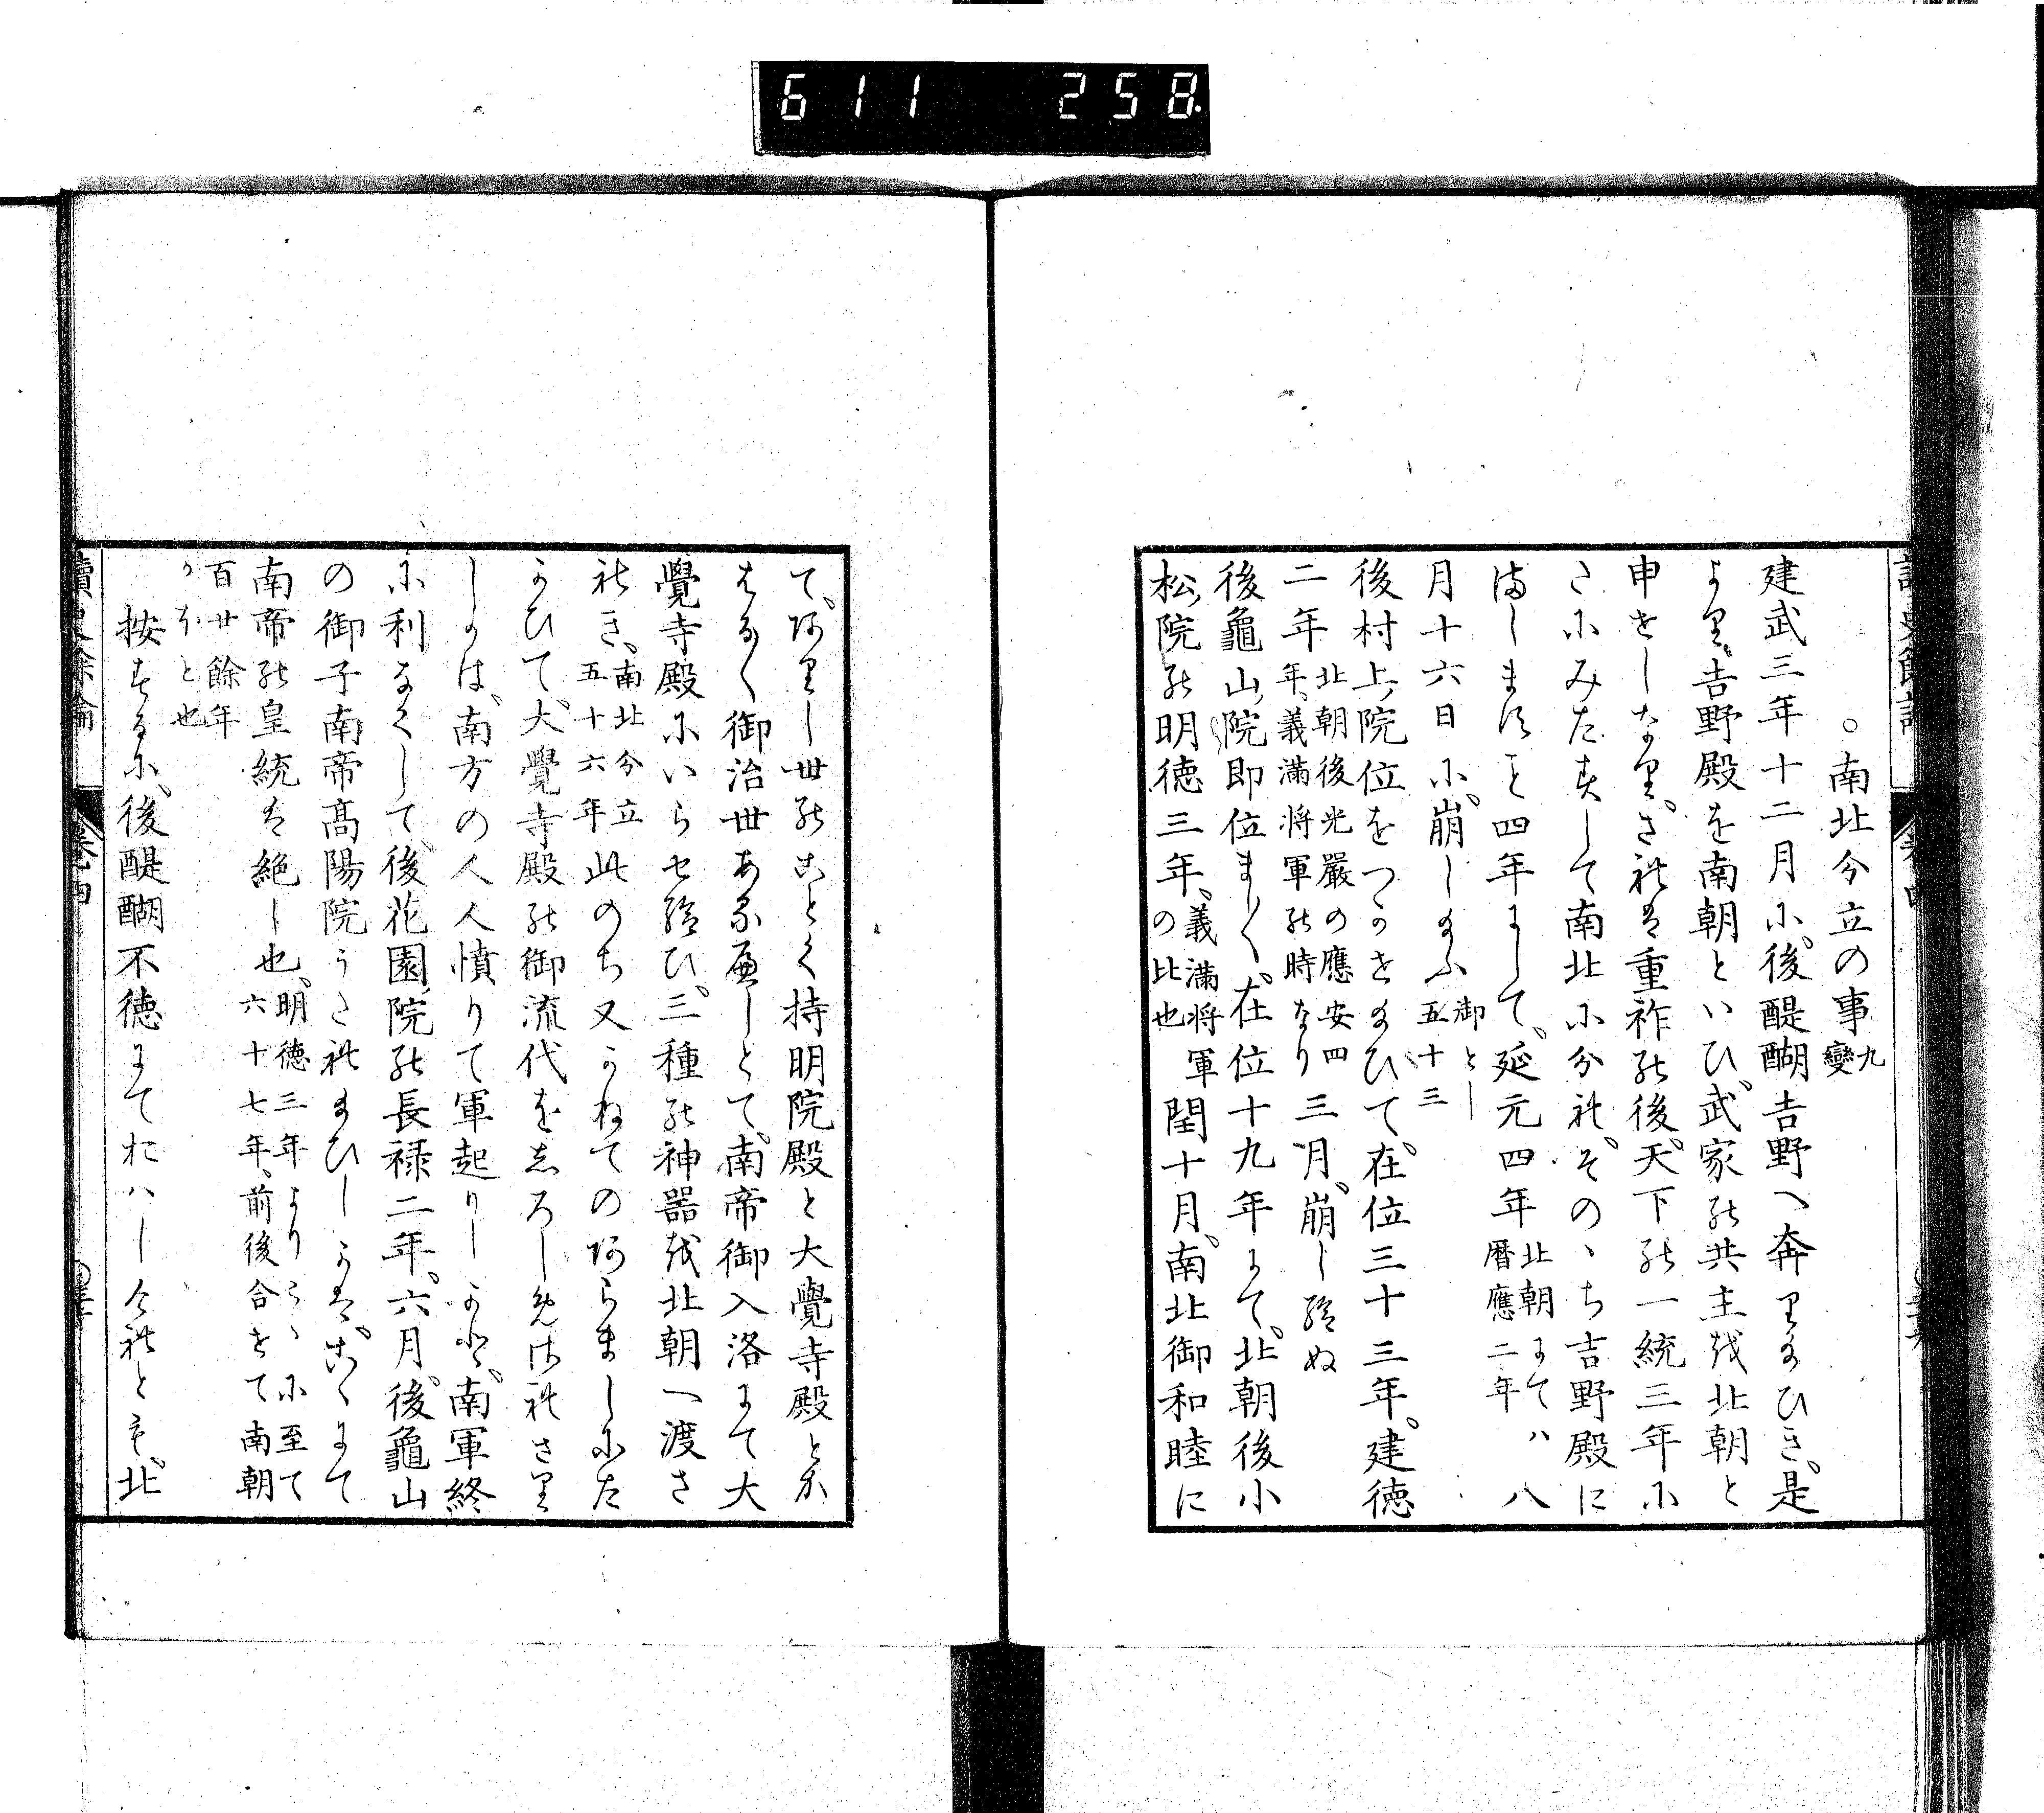 611 258
○南北分立の事 九變
建武三年十二月に、後醍醐吉野へ奔り給ひき、是
より、吉野殿を南朝といひ、武家の共主を北朝と
申せしなり、されば重祚の後、天下の一統三年に
さにみたずして南北に分れ、そのゝち吉野殿に
ましますこと四年にして、延元四年 北朝にてハ暦應二年 八
月十六日に、崩じ給ふ 御とし五十三
後村上院位をつがせ給ひて、在位三十三年、建徳
二年 北朝後光嚴の應安四年、義滿将軍の時なり 三月、崩じ給ぬ
後龜山院即位まし〳〵、在位十九年にて、北朝後小
松院の明徳三年、義滿将軍の比也 閏十月、南北御和睦に
て、ありし世のごとく持明院殿と大覺寺殿とか
はる〴〵御治世あるべしとて、南帝御入洛にて大
覺寺殿にいらせ給ひ、三種の神器を北朝へ渡さ
れき、南北分立五十六年 此のち又かねてのあらましにた
がひて、大覺寺殿の御流代をしろしめされざり
しかは、南方の人人憤りて軍起りしかど、南軍終
に利なくして、後花園院の長禄二年、六月、後龜山
の御子南帝髙陽院うたれ給ひしかば、こゝにて
南帝の皇統は絶し也、明徳三年よりこゝに至て六十七年、前後合せて南朝
百廿餘年がほと也
按ずるに、後醍醐不徳にておハしけれども、北
讀史餘論 卷四